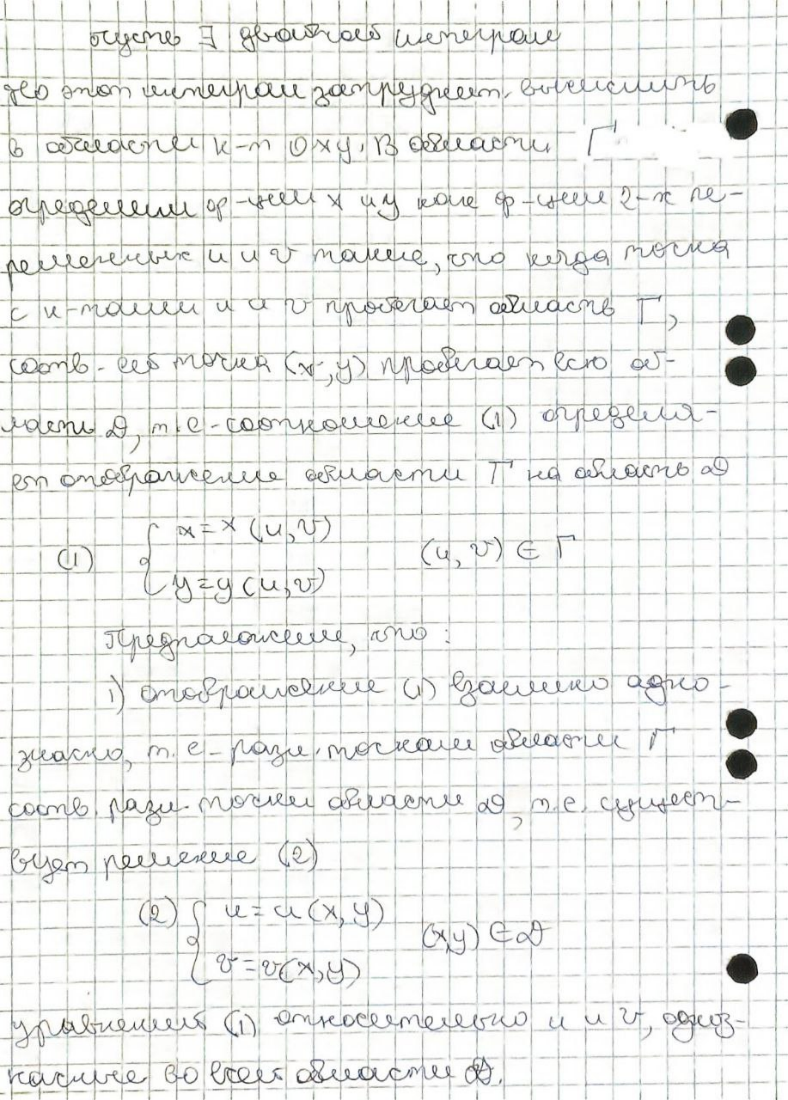 пусть ∃ двойной интеграл
но этот интеграл затруднит. вычислить
в области к-т Oxy. В области Γ
определим ф-ции x и y как ф-ции 2-х пе-
ременных u и v такие, что когда точка
с к-тами u и v пробегает область Γ,
соотв. ей точка (x, y) пробегает всю об-
ласть D, т.е. соотношение (1) определя-
ет отображение области Γ на область D
(1) { x = x (u, v) (u, v) ∈ Γ
y = y (u, v)
Предположим, что:
1) отображение (1) взаимно одно-
значно, т.е. разл. точкам области Γ
соотв. разл. точки области D, т.е. сущест-
вует решение (2)
(2) { u = u (x, y) (x, y) ∈ D
v = v (x, y)
уравнений (1) относительно u и v, одноз-
начные во всей области D.